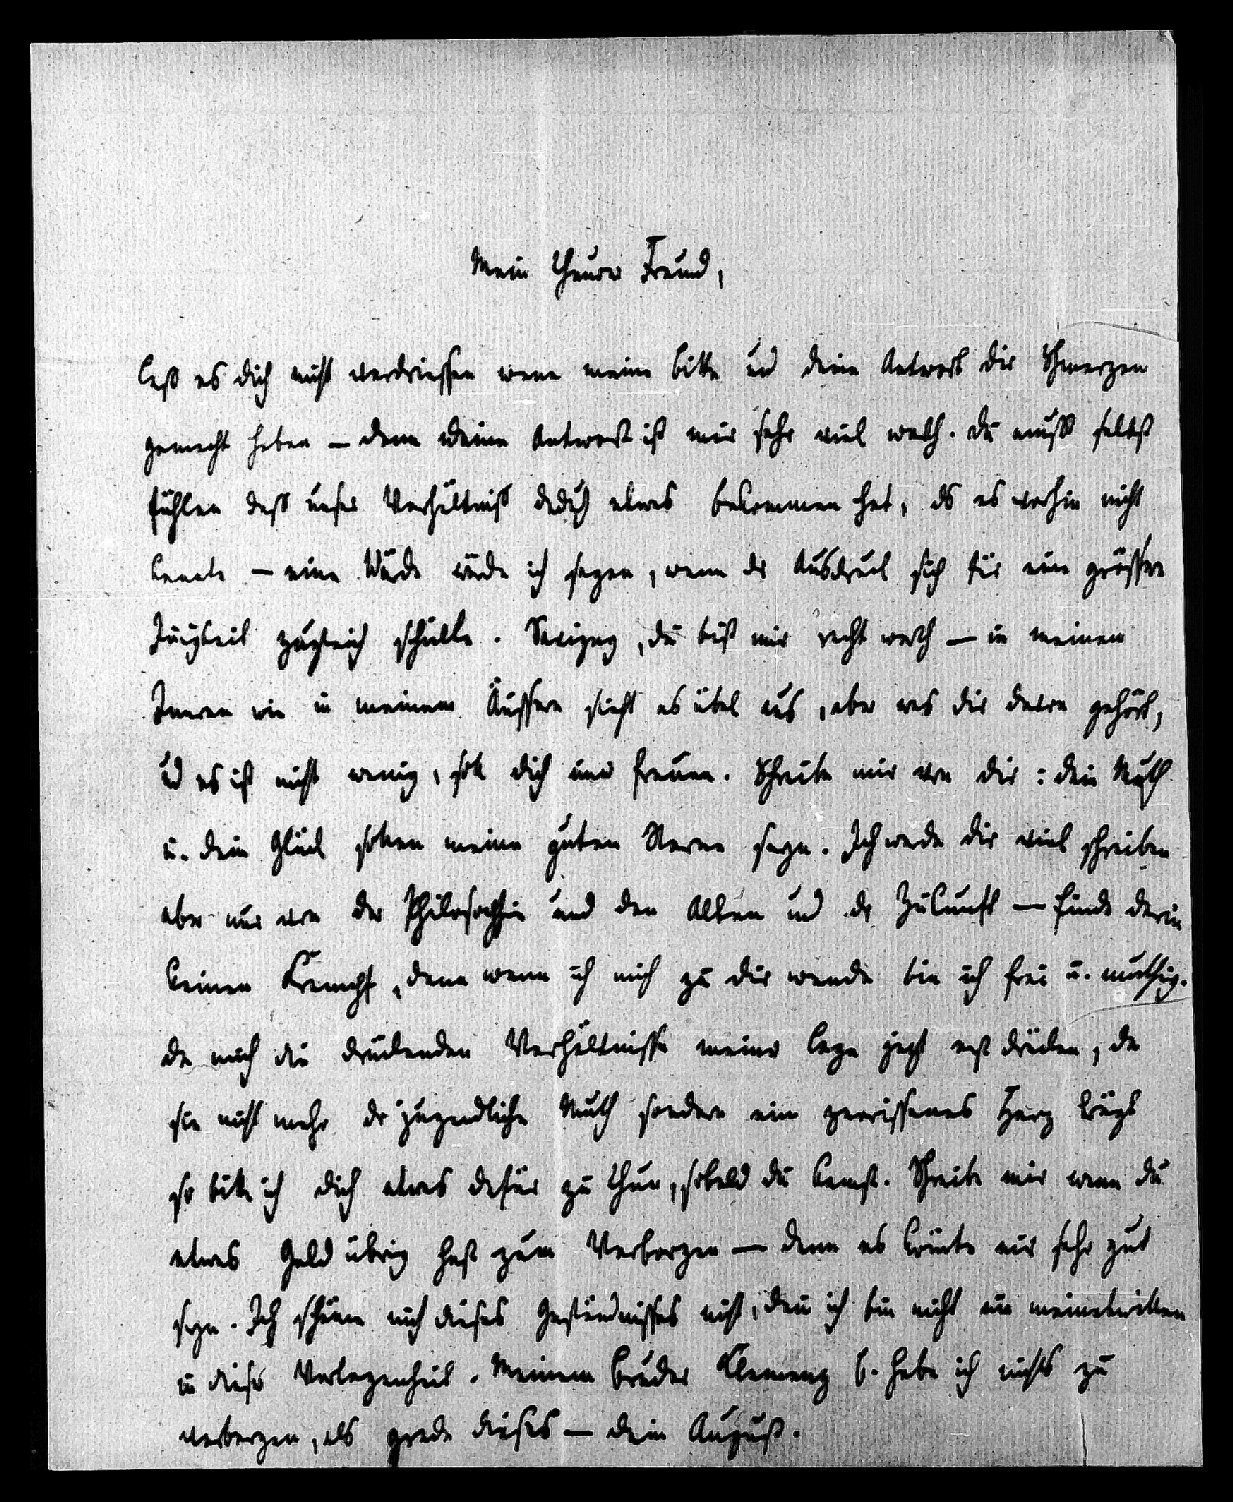 Mein theurer Freund,
laß es dich nicht verdriessen wenn meine bitte und deine Antwort dir Schmerzen
gemacht haben — denn deine Antwort ist mir sehr viel werth. Du mußt selbst
fühlen daß unser Verhältniß dadurch etwas bekommen hat, das es vorhin nicht
kannte — eine Würde würde ich sagen, wenn der Ausdruck sich für eine grössere
Innigkeit zugleich schikte. Savigny, du bist mir recht werth — in meinem
Innern wie in meinem Äussern sieht es übel aus, aber was dir davon gehört,
und es ist nicht wenig, soll dich nur freuen. Schreibe mir von dir: dein Muth
u. dein Glück sollen meine guten Sterne seyn. Ich werde dir viel schreiben
aber nur von der Philosophie und den Alten und der Zukunft — finde darin
keinen Krampf, denn wenn ich mich zu dir wende bin ich frei u. muthig.
da mich die druckenden Verhältnisse meiner Lage jezt erst drücken, da
sie nicht mehr der jugendliche Muth sondern ein zerrissenes Herz trägt
so bitte ich dich etwas dafür zu thun, sobald du kannst. Schreibe mir wenn du
etwas Geld übrig hast zum Verborgen — denn es könnte mir sehr gut
seyn. Ich schäme mich dieses Geständnisses nicht, denn ich bin nicht um meinetwillen
in dieser Verlegenheit. Meinem bruder Klemenz b. habe ich nichts zu
verbergen, als grade dieses — dein August.